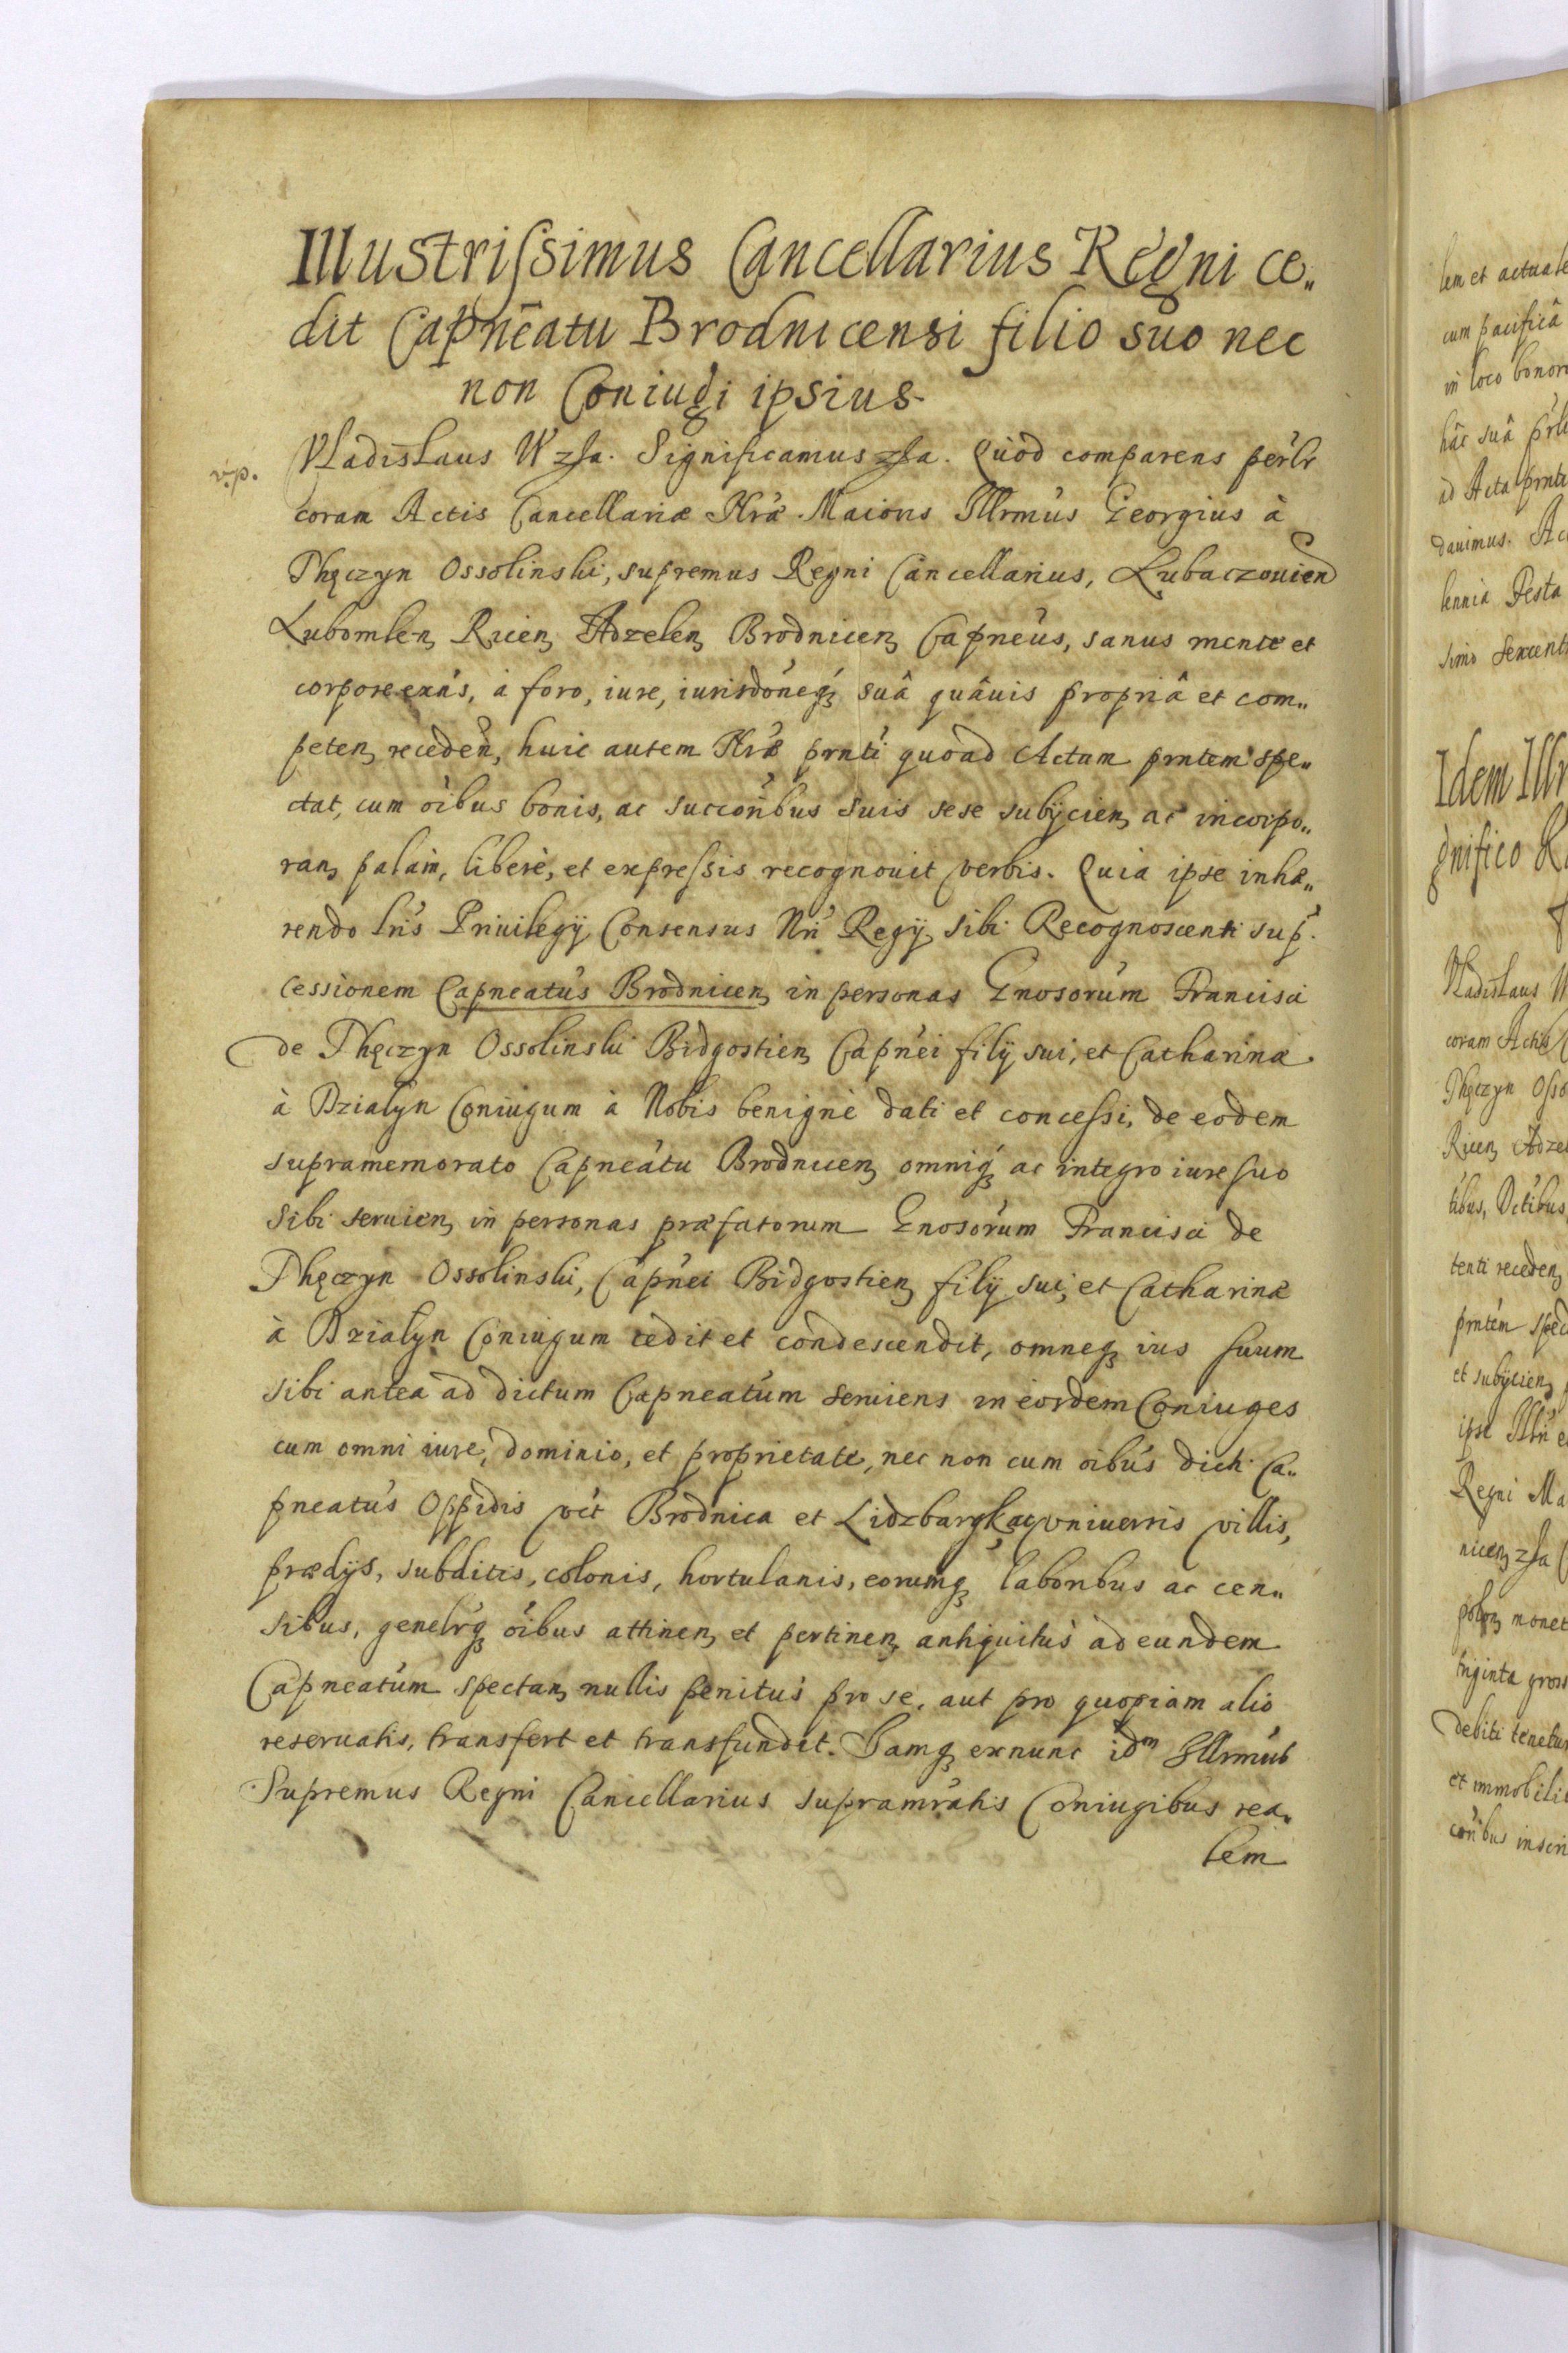 Illustrissimus Cancellarius Regni ce„
dit Capneatu Brodnicensi filio suo nec
non Coniugi ipsius.
v.p.
Vladislaus IV zha. Significamus zha. Quod comparens perlr
coram Actis Cancellariæ Nræ Maioris Illrmus Georgius à
Thęczyn Ossolinski, supremus Regni Cancellarius, Lubaczouien
Lubomlen, Ricen, Adzelen, Brodnicen, Capneus, sanus mente et
corpore exñs, à foro, iure, iurisdoneq, suâ quâuis propriâ et com„
peten, receden, huic autem Nræ prnti quoad Actum prntem spe„
ctat, cum oibus bonis, ac succoribus suis sese subijcien, ac incorpo„
ran, palam, liberè, et expressis recognouit verbis. Quia ipse inhæ„
rendo lris Priuilegij Consensus Nri Regij sibi Recognoscenti sup.
cessionem Capneatus Brodnicen, in personas Gnosorum Francisci
de Thęczyn Ossolinski Bidgostien, Capnei filij sui, et Catharinæ
à Dzialyn Coniugum à Nobis benignè dati et concessi, de eodem
supramemorato Capneatu Brodnicen, omniq, ac integro iure suo
sibi seruien, in personas præfatorum Gnosorum Francisci de
Thęczyn Ossolinski, Capnei Bidgostien, filij sui, et Catharinæ
à Dzialyn Coniugum cedit et condescendit, omneq, ius suum
sibi antea ad dictum Capneatum seruiens in eosdem Coniuges
cum omni iure, dominio, et proprietate, nec non cum oibus dicti Ca„
pneatus Oppidis vct Brodnica et Lidzbargk, ac vniuersis villis,
prædijs, subditis, colonis, hortulanis, eorumq, laboribus ac cen„
sibus, genelrq, oibus attinen, et pertinen, antiquitus ad eundem
Capneatum spectan, nullis penitus pro se, aut pro quopiam alio
reseruatis, transfert et transfundit. Iamq, exnunc idm Illrmus
Supremus Regni Cancellarius supramratis Coniugibus rea„
lem
lem et actuale
cum pacificâ
in loco bonor
hâc suâ
ad Acta
dauimus. Ac
lennia Festa
simo sexcent
Idem Illr
gnifico
Vladislaus
coram Actis
Thęczyn Osso
Ricen, Adze
tibus,
tenti receden,
prntem spec
et subijcien,
ipse Illr
Regni Ma
nicen, zha
polon, monet
triginta gross
debiti tenetur
et immobili